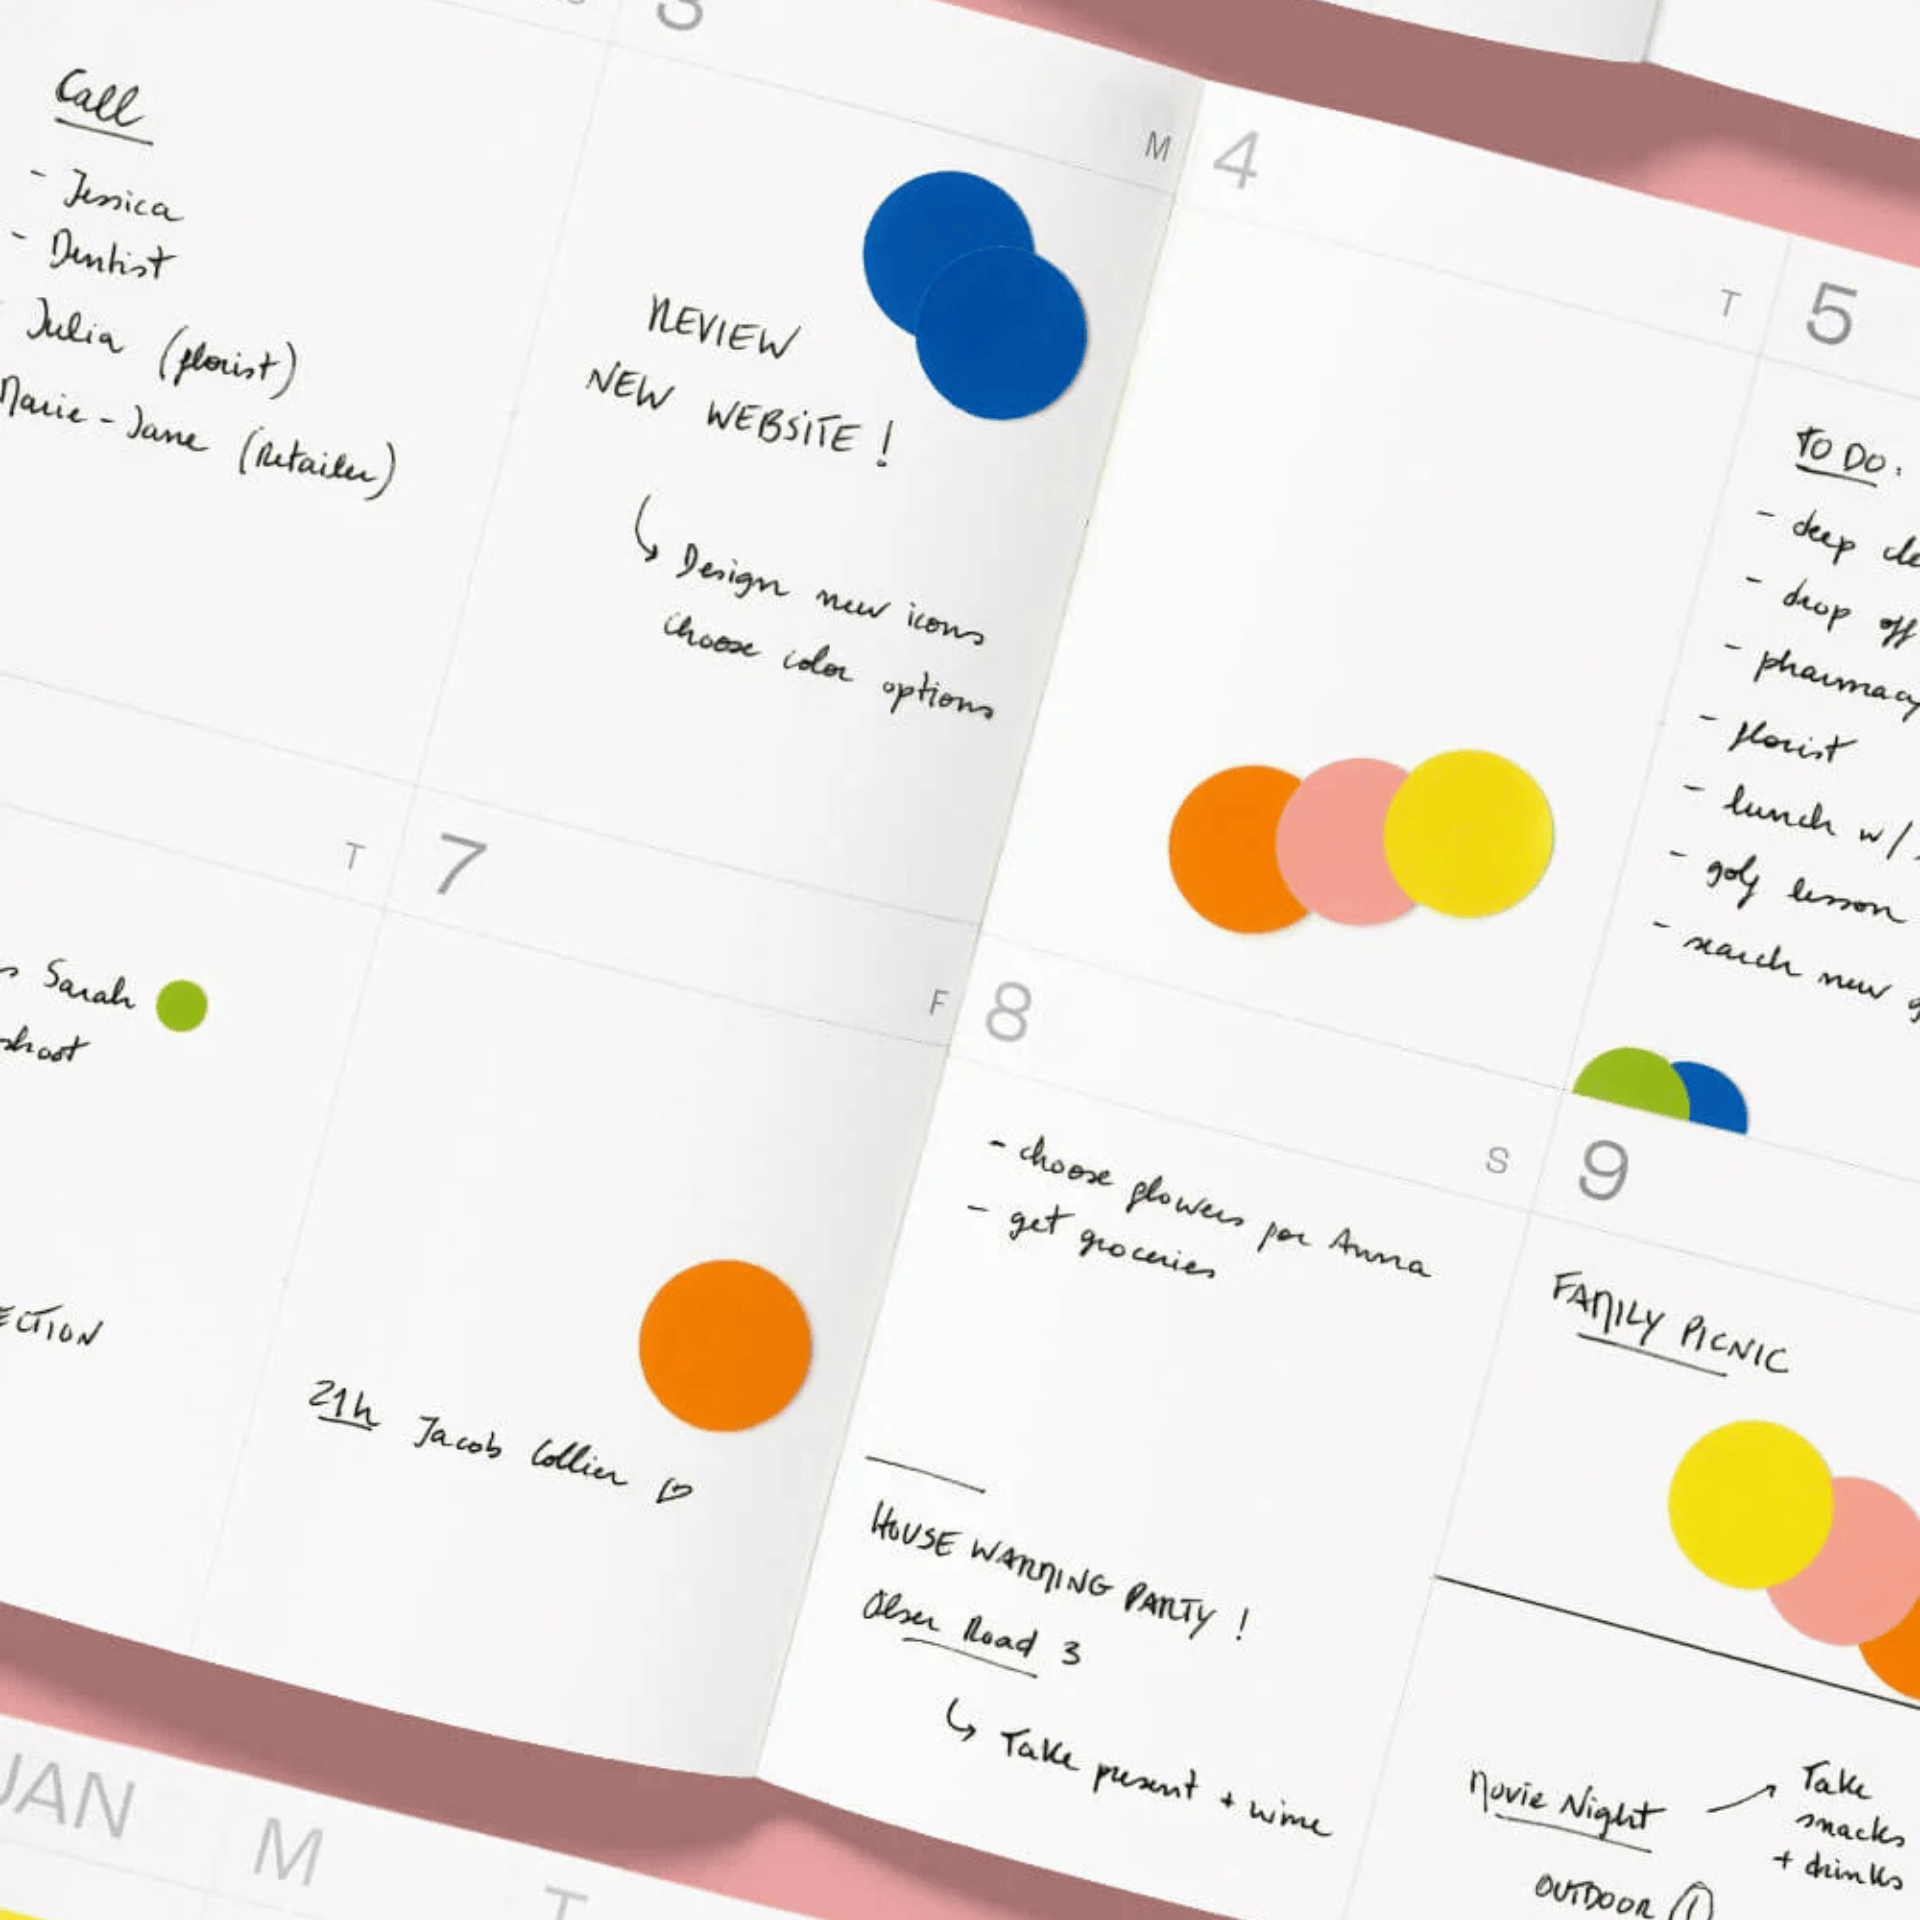 3
M
Call
- Jessica
- Dentist
Julia (florist)
Marie-Jane (Retailer)
REVIEW
NEW WEBSITE!
↳ Design new icons
choose color options
4
T
5
TO DO:
- deep
- drop off
- pharmacy
- florist
- lunch w/
- golf lesson
- search new
T
Sarah
shoot
7
F
21h Jacob Collier ♡
8
S
- choose flowers for Anna
- get groceries
HOUSE WARMING PARTY!
Road 3
↳ Take present + wine
9
FAMILY PICNIC
Movie Night → Take
snacks
+ drinks
OUTDOOR
JAN
M
T